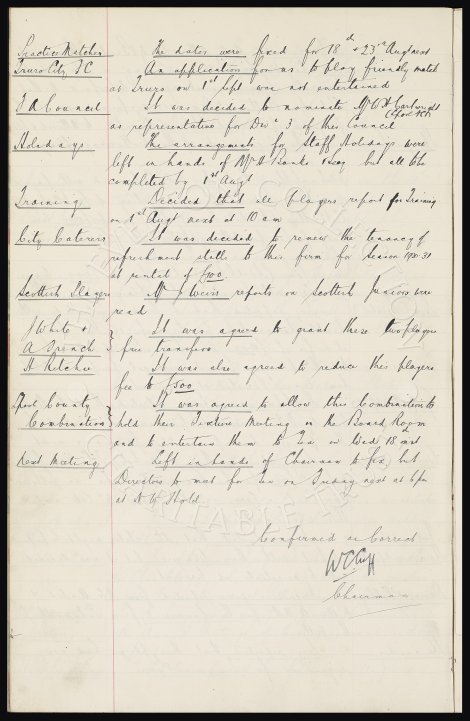 Practice Matches The dates were fixed for 18th & 23rd Augt next
Truro City F C An application for us to play friendly match
at Truro on 1st Sept was not entertained
F A Council It was decided to nominate Mr W H Cartwright
as representative for Div 3 of this Council
Holidays The arrangements for Staff Holidays were
left in hands of Mr A Banks & Secy but all to be
completed by 1st Augt
Training Decided that all players report for Training
on 1st Augt next at 10 am
City Caterers It was decided to renew the tenancy of
refreshment stalls to this firm for Season 1930-31
at rental of £100.
Scottish Players Mr J Weir reports on Scottish Juniors were
read
J White & It was agreed to grant these two players
A Spench free transfers
H Ritchie It was also agreed to reduce this players
fee to £500
Lpool County It was agreed to allow this Combination to
Combination hold their Fixture Meeting in the Board Room
and to entertain them to Tea on Wed 18 inst
Next Meeting Left in hands of Chairman to fix, but
Directors to meet for Tea on Friday next at 6 pm
at N W Hotel.
Confirmed as Correct
W C Cuff
Chairman